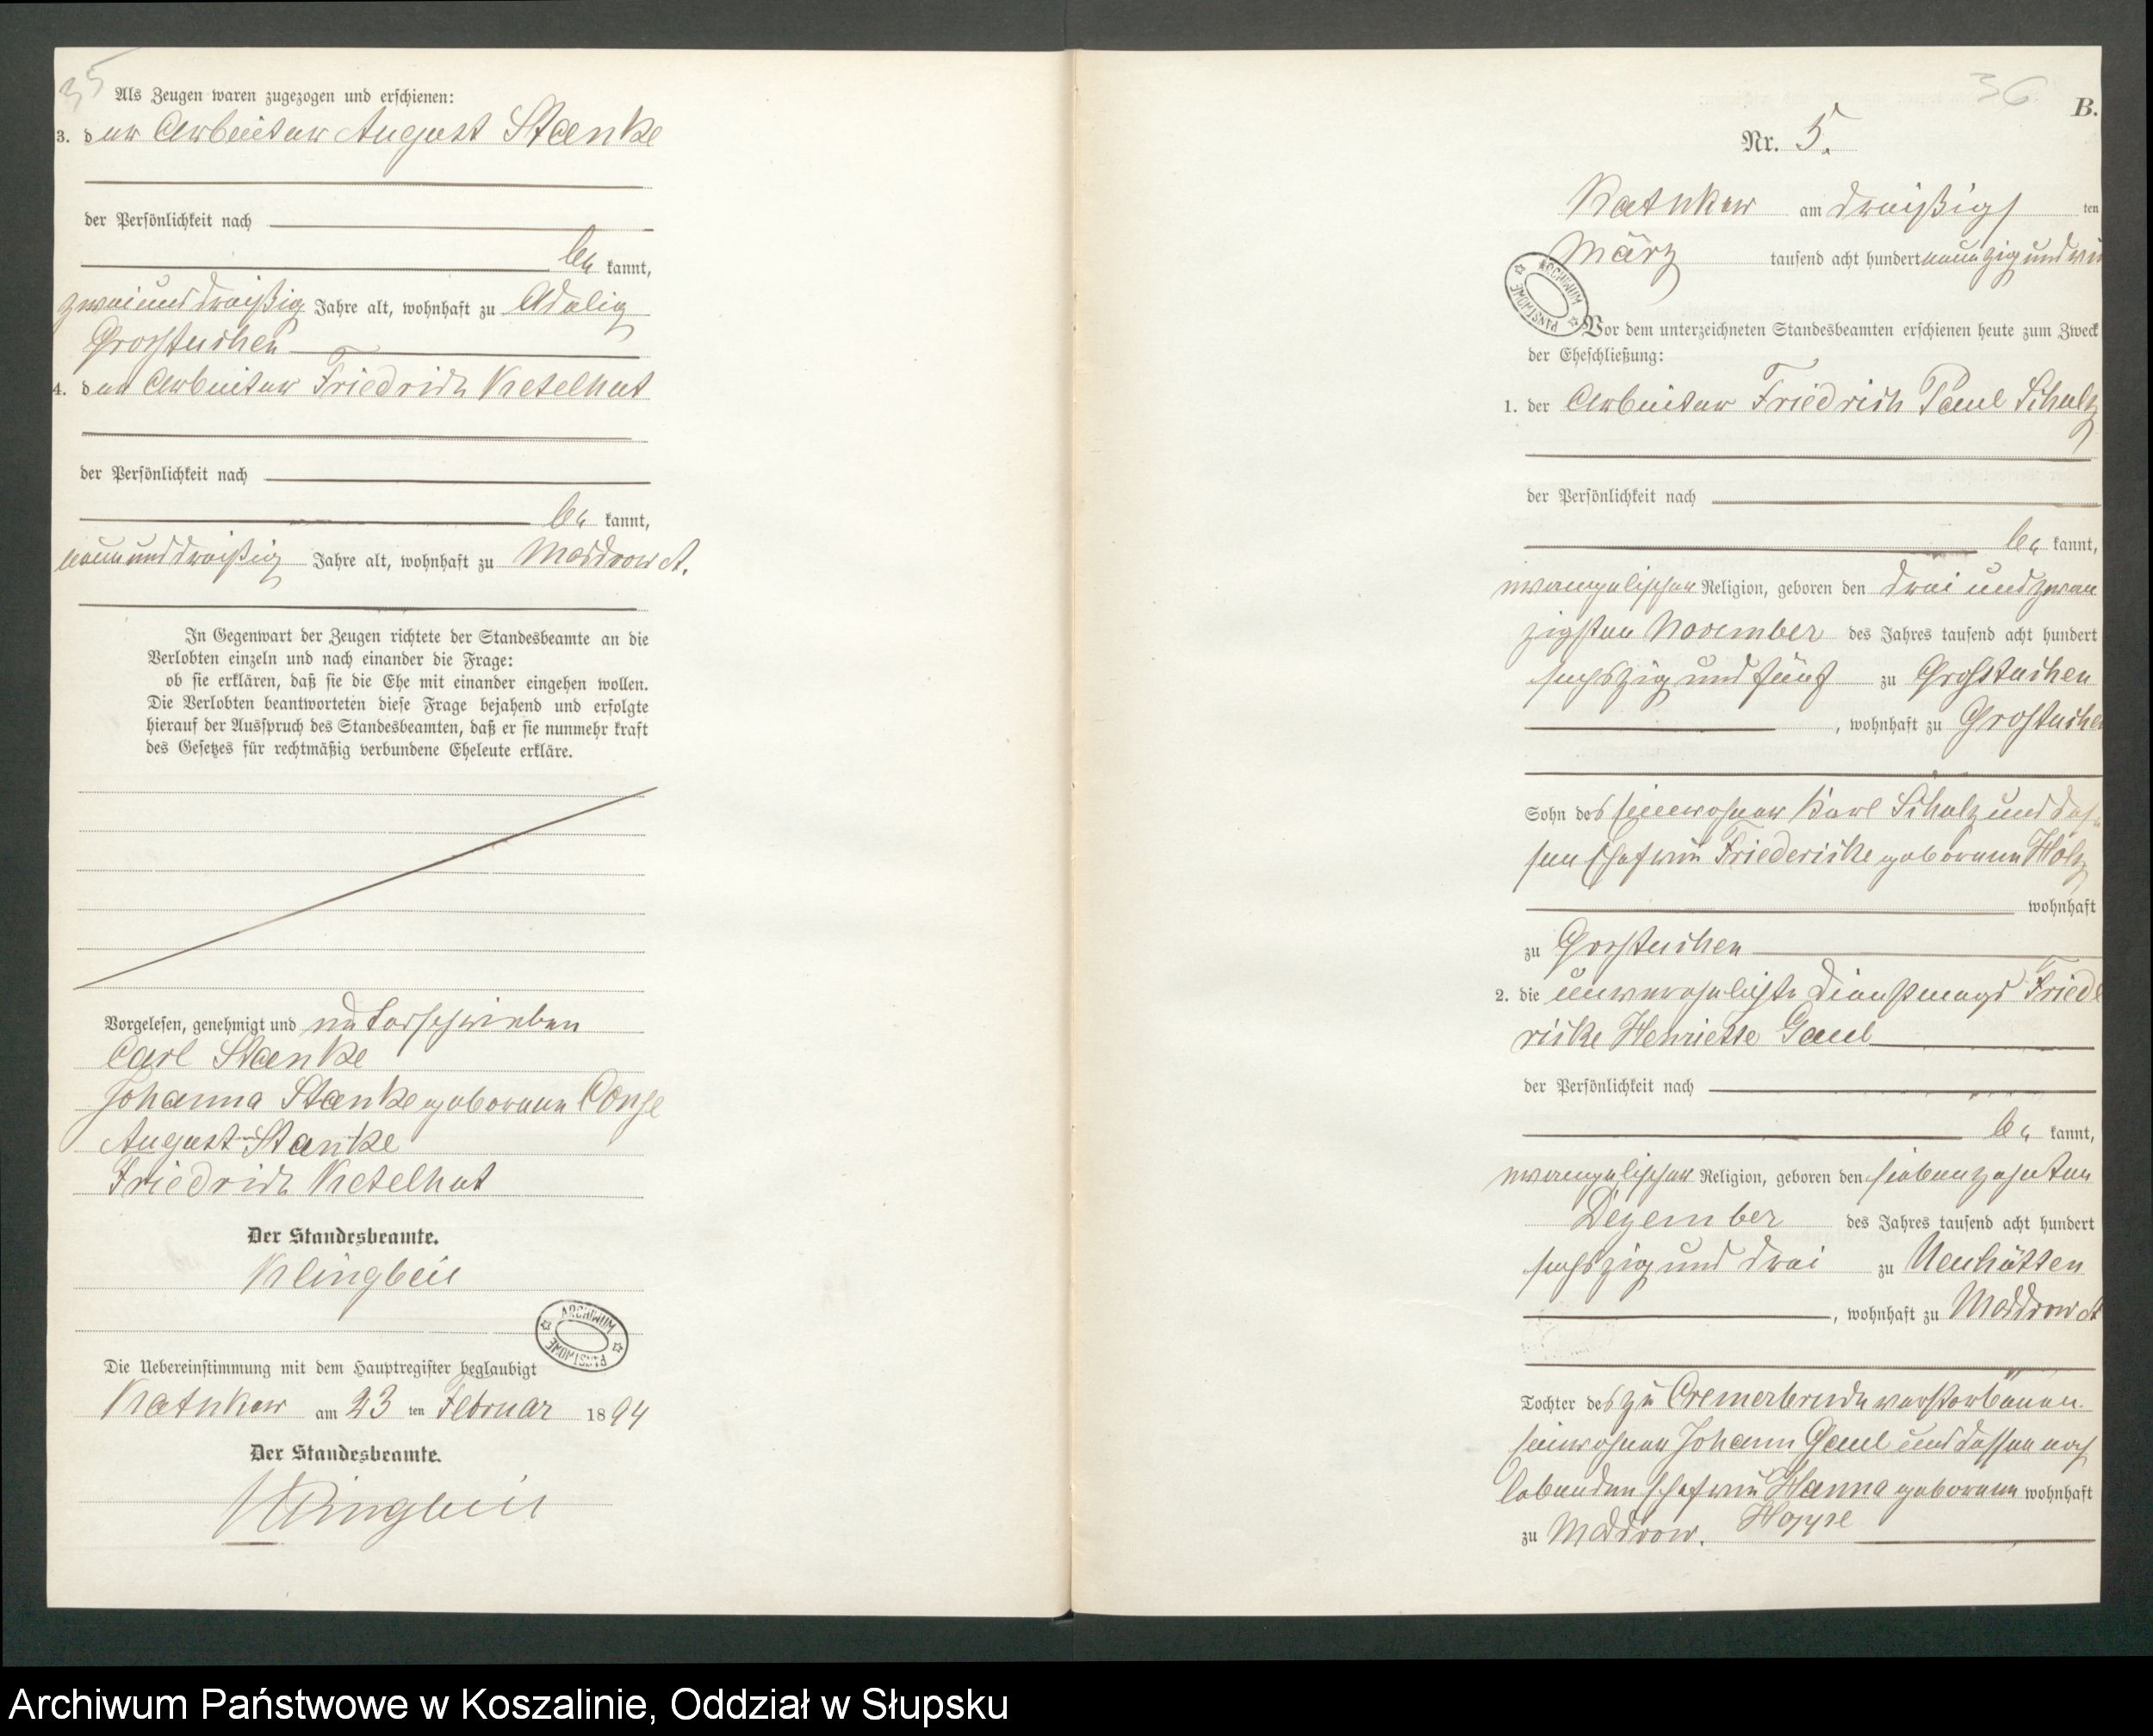 35
Als Zeugen waren zugezogen und erschienen:
3. der Arbeiter August Stanke
der Persönlichkeit nach
be kannt,
zweiunddreißig Jahre alt, wohnhaft zu Adelig
Grostuchen
4. der Arbeiter Friedrich Ketelhut
der Persönlichkeit nach
be kannt,
neununddreißig Jahre alt, wohnhaft zu Moddrow A.
In Gegenwart der Zeugen richtete der Standesbeamte an die
Verlobten einzeln und nach einander die Frage:
ob sie erklären, daß sie die Ehe mit einander eingehen wollen.
Die Verlobten beantworteten diese Frage bejahend und erfolgte
hierauf der Ausspruch des Standesbeamten, daß er sie nunmehr kraft
des Gesetzes für rechtmäßig verbundene Eheleute erkläre.
Vorgelesen, genehmigt und unterschrieben
Carl Stanke
Johanna Stanke geborene
August Stanke
Friedrich Ketelhut
Der Standesbeamte.
Klingbeil
ARCHIWUM PAŃSTWOWE
Die Uebereinstimmung mit dem Hauptregister beglaubigt
Katkow am 23 ten Februar 1894
Der Standesbeamte.
Klingbeil
36
B.
Nr. 5.
Katkow am dreißigs ten
März tausend acht hundert neunzig und vie
ARCHIWUM PAŃSTWOWE
Vor dem unterzeichneten Standesbeamten erschienen heute zum Zweck
der Eheschließung:
1. der Arbeiter Friedrich Paul Schulz
der Persönlichkeit nach
be kannt,
evangelischer Religion, geboren den drei und zwan
zigsten November des Jahres tausend acht hundert
sechszig und fünf zu Großtuchen
, wohnhaft zu Grostuchen
Sohn des Einwohner Karl Schulz und des
sen Ehefrau Friedericke geborene Holz
wohnhaft
zu Grostuchen
2. die unverehelichte Dienstmagd Friede
ricke Henriette Gaul
der Persönlichkeit nach
be kannt,
evangelischer Religion, geboren den siebenzehnten
Dezember des Jahres tausend acht hundert
sechszig und drei zu Neuhütten
, wohnhaft zu Moddrow A
Tochter des zu Cremerbruch verstorbenen
Einwohner Johann Gaul und dessen noch
lebenden Ehefrau Hanna geborene wohnhaft
zu Moddrow. Hoppe
Archiwum Państwowe w Koszalinie, Oddział w Słupsku